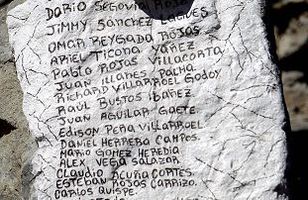 DARIO SEGOVIA ROJAS
JIMMY SANCHEZ LAGUES
OMAR REYGADA ROJAS
ARIEL TICONA YAÑEZ
PABLO ROJAS VILLACORTA
JUAN ILLANES PALMA
RICHARD VILLARROEL GODOY
RAUL BUSTOS IBAÑEZ
JUAN AGUILAR GAETE
EDISON PEÑA VILLARROEL
DANIEL HERRERA CAMPOS
MARIO GOMEZ HEREDIA
ALEX VEGA SALAZAR
CLAUDIO ACUÑA CORTES.
ESTEBAN ROJAS CARRIZO.
CARLOS QUISPE.